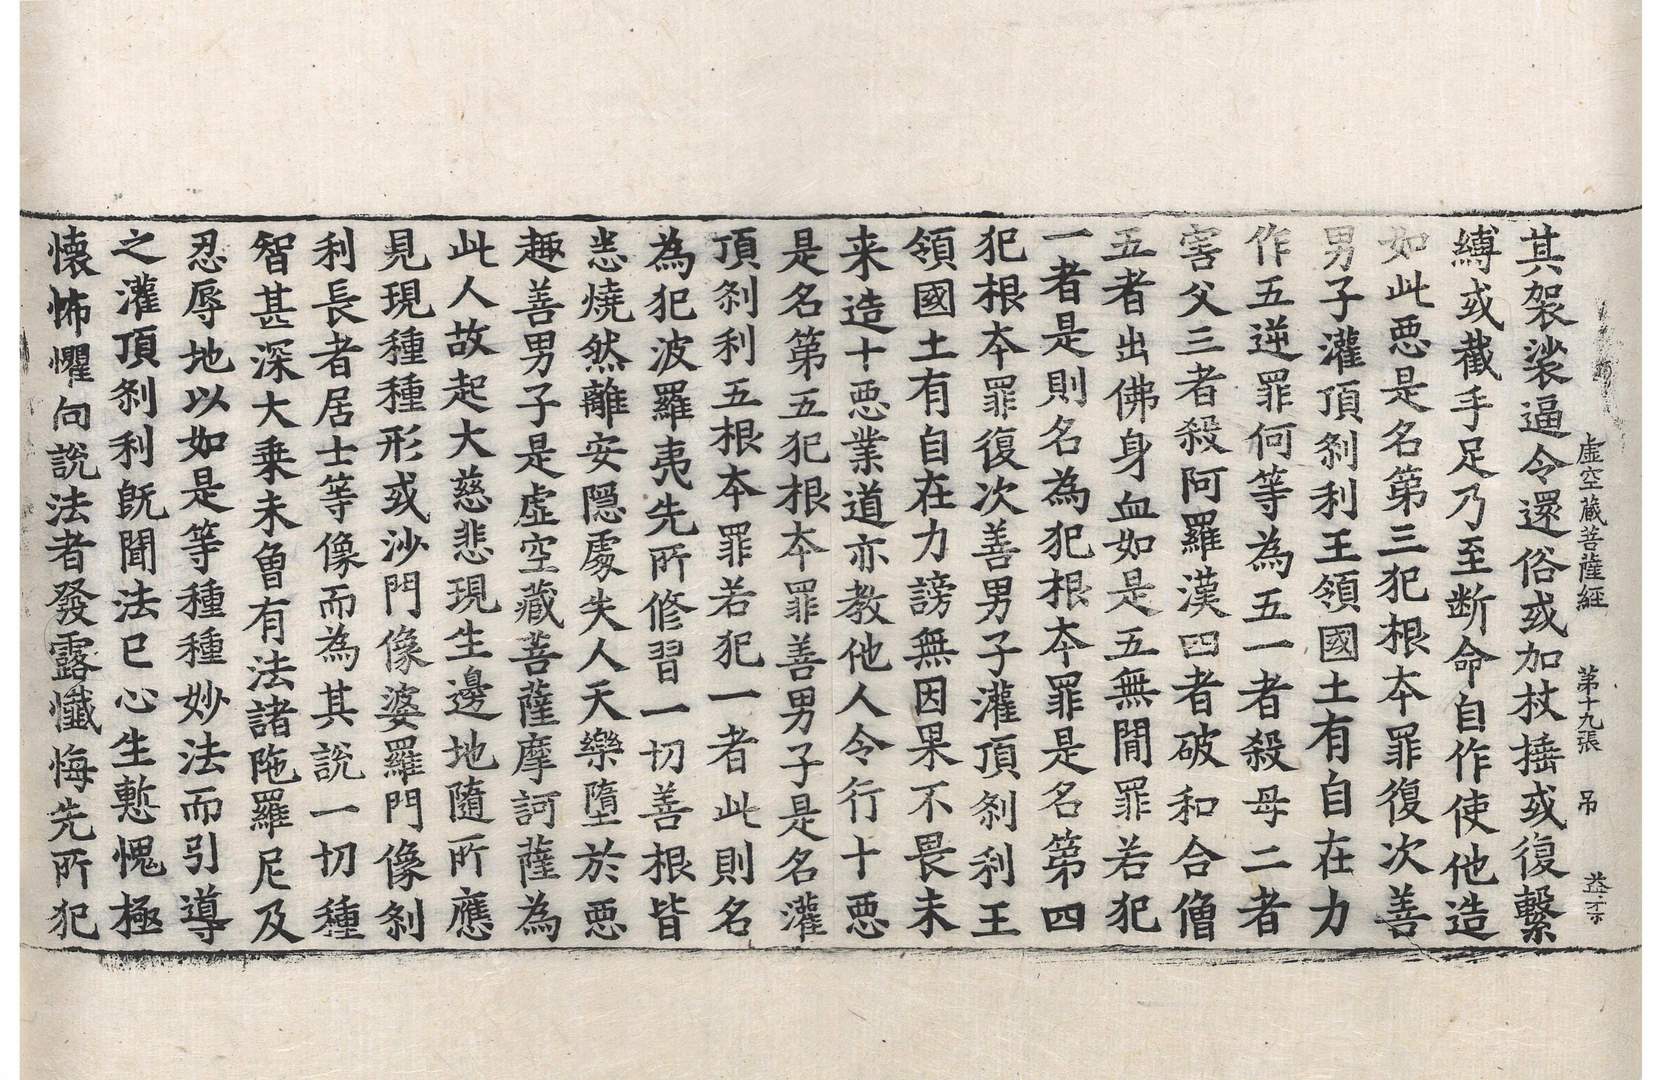 虛空藏菩薩經 第十九張 吊
其袈裟逼令還俗或加杖捶或復繫
縛或截手足乃至断命自作使他造
如此惡是名第三犯根夲罪復次善
男子灌頂刹利王領國土有自在力
作五逆罪何等為五一者殺母二者
害父三者殺阿羅漢四者破和合僧
五者出佛身血如是五無閒罪若犯
一者是則名為犯根夲罪是名第四
犯根夲罪復次善男子灌頂刹利王
領國土有自在力謗無因果不畏未
来造十惡業道亦教他人令行十惡
是名第五犯根夲罪善男子是名灌
頂刹利五根夲罪若犯一者此則名
為犯波羅夷先所修習一切善根皆
悉燒然離安隱處失人天樂墮於惡
趣善男子是虛空藏菩薩摩訶薩為
此人故起大慈悲現生邊地隨所應
見現種種形或沙門像婆羅門像刹
利長者居士等像而為其說一切種
智甚深大乗未曾有法諸陁羅尼及
忍辱地以如是等種種妙法而引導
之灌頂刹利既聞法已心生慙愧極
懷怖懼向說法者發露懺悔先所犯